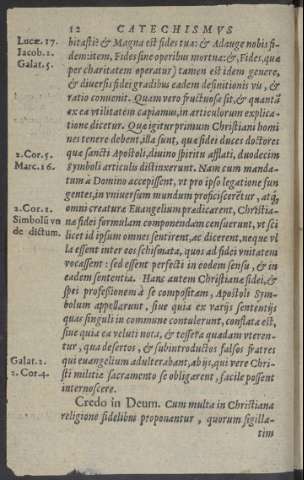 12 CATECHISMVS
Lucæ. 17.
Iacob. 2.
Galat. 5.
bitastiē & Magna est fides tua: & Adauge nobis fi-
dem: item, Fides sine operibus mortua: & , Fides, quæ
per charitatem operatur) tamen est idem genere,
& diuersis fidei gradibus eadem definitionis vis, &
ratio conuenit. Quam vero fructuosa sit, & quantā
ex ea vtilitatem capiamus, in articulorum explica-
tione dicetur. Quæ igitur primum Christiani homi
nes tenere debent, illa sunt, quæ fidei duces doctores
2. Cor. 5.
que sancti Apostoli, diuino spiritu afflati, duodecim
Marc. 16.
Symboli articulis distinxerunt. Nam cum manda-
tum à Domino accepissent, vt pro ipso legatione fun
gentes, in vniuersum mundum proficiscerētur, atq,
2. Cor. 2.
omni creaturæ Euangelium prædicarent, Christia-
Simbolū vn
de dictum.
næ fidei formulam componendam censuerunt, vt sci
licet id ipsum omnes sentirent, ac dicerent, neque vl
la essent inter eos schismata, quos ad fidei vnitatem
vocassent: sed essent perfecti in eodem sensu, & in
eadem sententia. Hanc autem Christianæ fidei, &
spei professionem à se compositam, Apostoli Sym-
bolum appellarunt, siue quia ex varijs sententijs
quas singuli in commune contulerunt, conflata est,
siue quia ea veluti nota, & tessera quadam vteren-
tur, qua desertos, & subintroductos falsos fratres
Galat. 2.
qui euangelium adulterabant, ab ijs, qui vere Chri-
2. Cor 4.
sti militiæ sacramento se obligarent, facile possent
internoscere.
Credo in Deum. Cum multa in Christiana
religione fidelibus proponantur, quorum sigilla-
tim